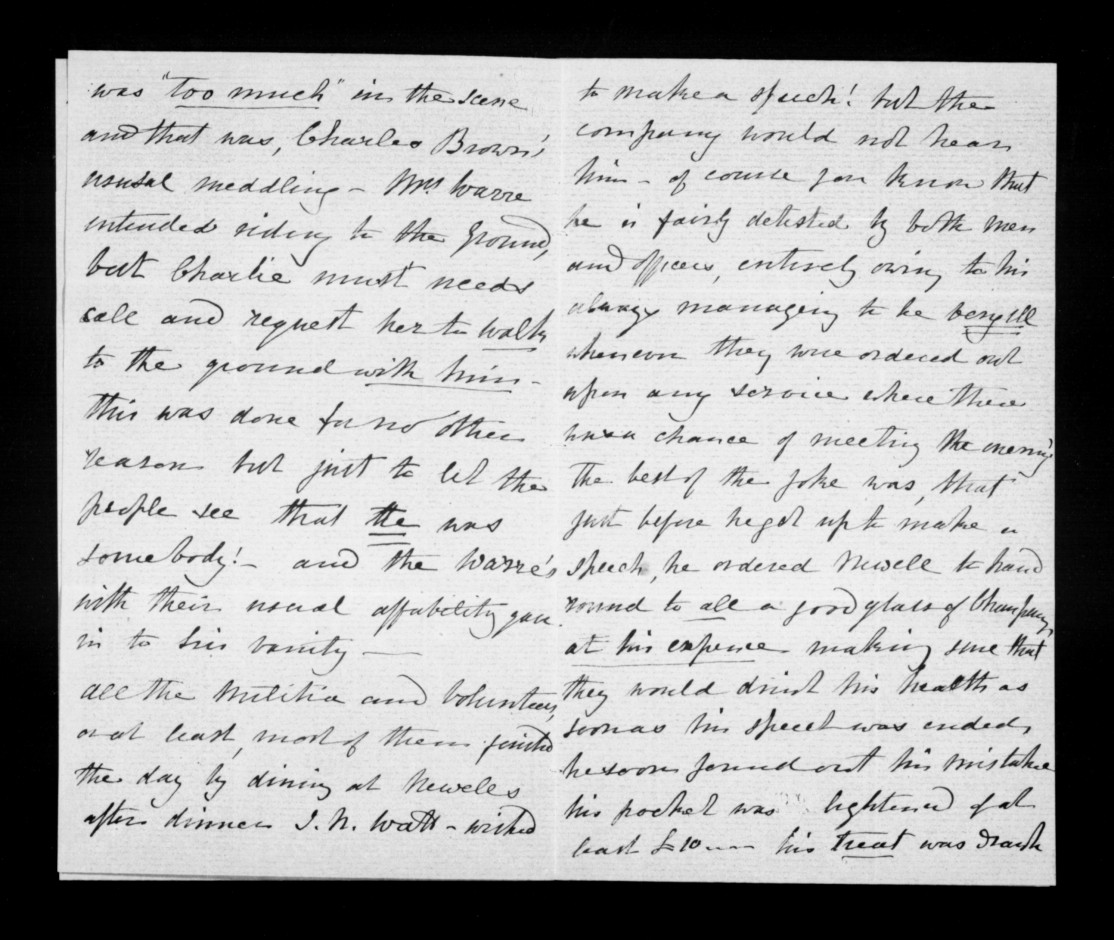 was "too much" in the scene
and that was, Charles Brown's
usual meddling - Mrs Warre
intended riding to the ground,
but Charlie must needs
call and request her to walk
to the ground with him -
this was done for no other
reason but just to let the
people see that he was
somebody! - and the Warre's
with their usual affability gave
in to his vanity —
all the Militia and Volunteers,
or at least, most of them finished
the day by dining at Newells
after dinner J. N. Watt - wished
to make a speech! but the
company would not hear
him - of course you know that
he is fairly detested by both men
and officers, entirely owing to his
always managing to be very ill
whenever they were ordered out
upon any service where there
was a chance of meeting the enemy
the best of the joke was, that
just before he got up to make a
speech, he ordered Newell to hand
round to all a good glass of Champagne,
at his expense making sure that
they would drink his health as
soon as his speech was ended,
he soon found out his mistake
his pocket was lightened of at
least £10 his treat was drank